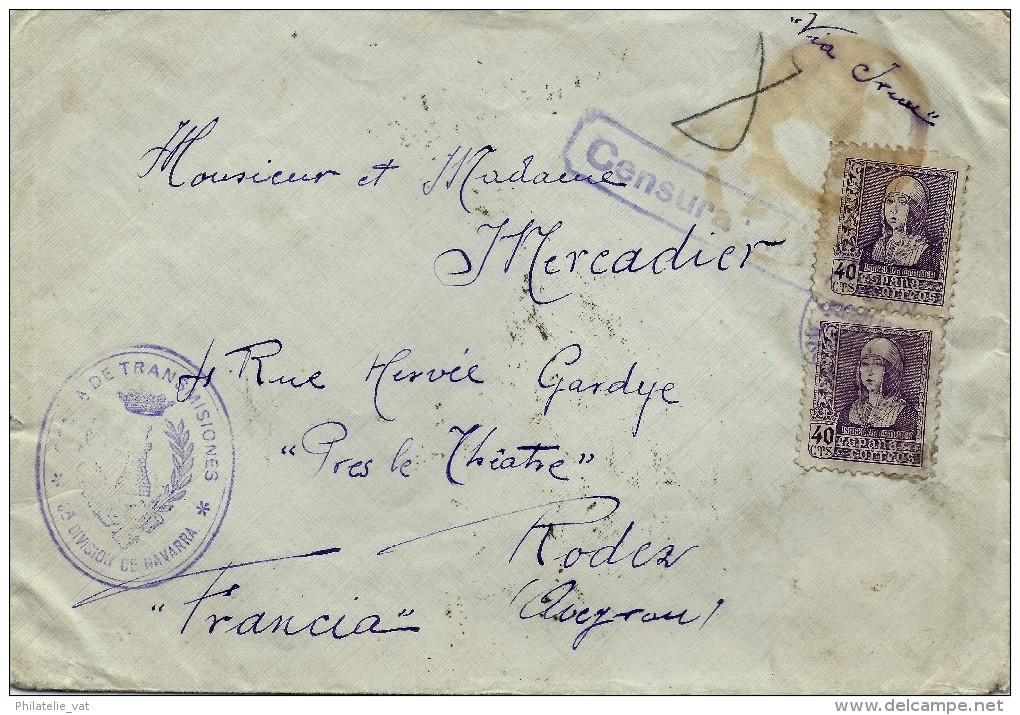 "Via Irun"
Censura
Monsieur et Madame
Mercadier
4 Rue Hervié Gardye
"Pres le Théatre"
Rodez
(Aveyron)
"Francia"
DE TRANSMISIONES
DIVISION DE NAVARRA
40
CTS
ESPAÑA
CORREOS
40
CTS
ESPAÑA
CORREOS
Philatelie_vat
www.delcampe.net